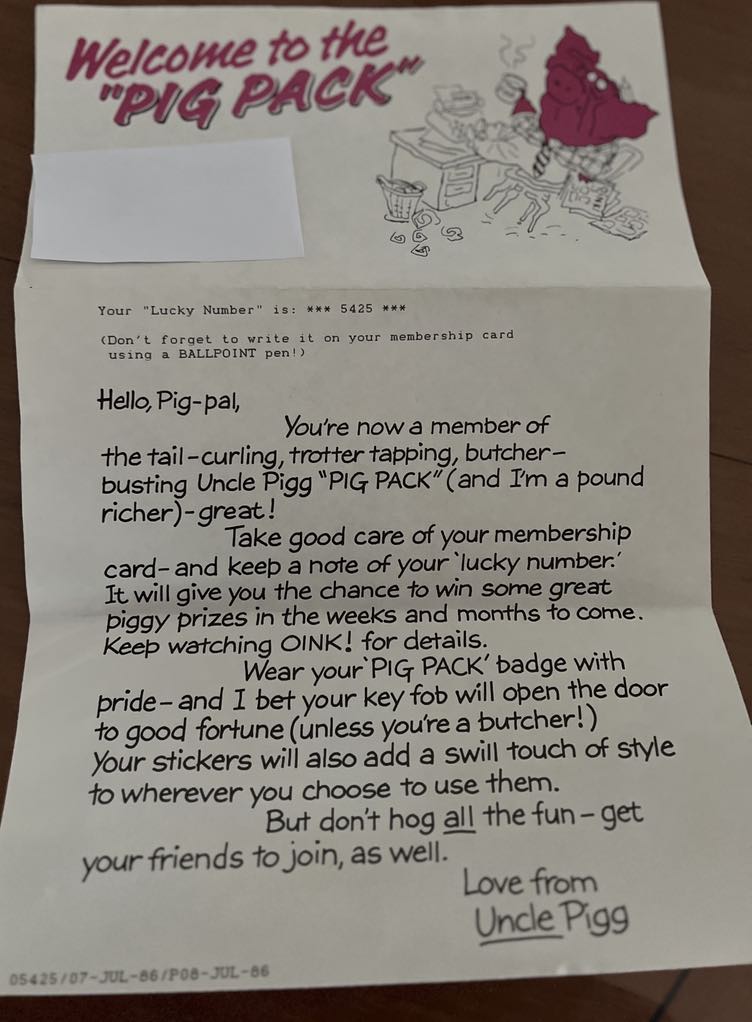 Welcome to the
"PIG PACK"
Your "Lucky Number" is: *** 5425 ***
(Don't forget to write it on your membership card
using a BALLPOINT pen!)
Hello, Pig-pal,
You're now a member of
the tail-curling, trotter tapping, butcher-
busting Uncle Pigg "PIG PACK" (and I'm a pound
richer)-great!
Take good care of your membership
card-and keep a note of your 'lucky number.'
It will give you the chance to win some great
piggy prizes in the weeks and months to come.
Keep watching OINK! for details.
Wear your 'PIG PACK' badge with
pride-and I bet your key fob will open the door
to good fortune (unless you're a butcher!)
Your stickers will also add a swill touch of style
to wherever you choose to use them.
But don't hog all the fun-get
your friends to join, as well.
Love from
Uncle Pigg
05425/07-JUL-86/P08-JUL-86